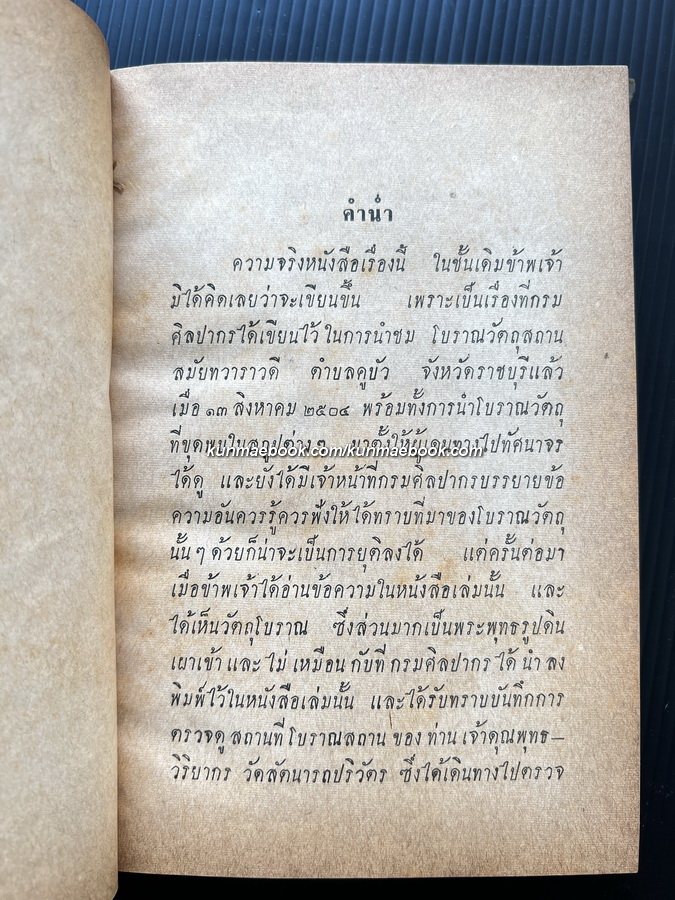 คำนำ
ความจริงหนังสือเรื่องนี้ ในชั้นเดิมข้าพเจ้า
มิได้คิดเลยว่าจะเขียนขึ้น เพราะเป็นเรื่องที่กรม
ศิลปากรได้เขียนไว้ในการนำชม โบราณวัตถุสถาน
สมัยทวาราวดี ตำบลคูบัว จังหวัดราชบุรีแล้ว
เมื่อ ๑๓ สิงหาคม ๒๕๐๔ พร้อมทั้งการนำโบราณวัตถุ
ที่ขุดพบในสถูปต่าง ๆ มาตั้งให้ผู้เดินทางไปทัศนาจร
kunmaebook.com/kunmaebook.com
ได้ดู และยังได้มีเจ้าหน้าที่กรมศิลปากรบรรยายข้อ
ความอันควรรู้ควรฟังให้ได้ทราบที่มาของโบราณวัตถุ
นั้น ๆ ด้วยก็น่าจะเป็นการยุติลงได้ แต่ครั้นต่อมา
เมื่อข้าพเจ้าได้อ่านข้อความในหนังสือเล่มนั้น และ
ได้เห็นวัตถุโบราณ ซึ่งส่วนมากเป็นพระพุทธรูปดิน
เผาเข้า และ ไม่ เหมือน กับที่ กรมศิลปากร ได้ นำ ลง
พิมพ์ไว้ในหนังสือเล่มนั้น และได้รับทราบบันทึกการ
ตรวจดู สถานที่ โบราณสถาน ของ ท่าน เจ้าคุณพุทธ–
วิริยากร วัดสัตนารถปริวัตร ซึ่งได้เดินทางไปตรวจ